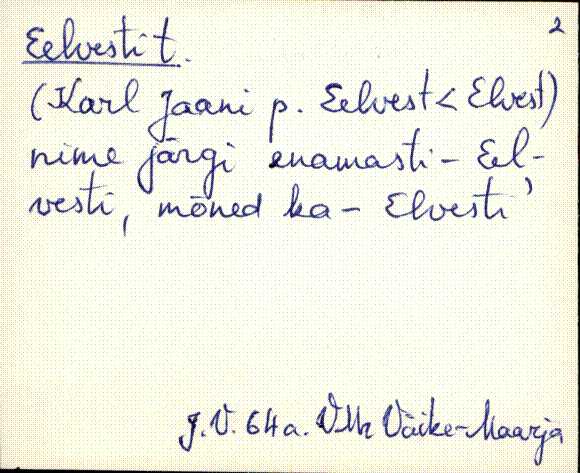 2
Eelvesti t.
(Karl Jaani p. Eelvest < Elvest)
nime järgi enamasti - Eel-
vesti, mõned ka - Elvesti'
J.V. 64 a. VMr Väike-Maarja